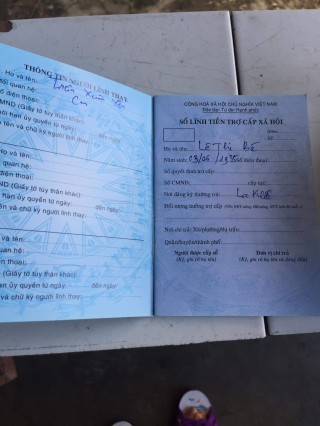 THÔNG TIN NGƯỜI LĨNH THAY
Họ và tên:
quan hệ:
Số điện thoại:
CMND (Giấy tờ tùy thân khác):
hạn ủy quyền từ ngày: đến ngày:
tên và chữ ký người lĩnh thay:
Họ và tên:
quan hệ:
điện thoại:
ND (Giấy tờ tùy thân khác):
hạn ủy quyền từ ngày: đến ngày:
và chữ ký người lĩnh thay:
và tên:
hệ:
thoại:
(Giấy tờ tùy thân khác):
ủy quyền từ ngày: đến ngày:
và chữ ký người lĩnh thay:
CỘNG HOÀ XÃ HỘI CHỦ NGHĨA VIỆT NAM
Độc lập Tự do Hạnh phúc
SỔ LĨNH TIỀN TRỢ CẤP XÃ HỘI
Họ và tên: Lê Thị Bé
Năm sinh: Số điện thoại:
Số quyết định trợ cấp:
Số CMND: cấp tại:
Nơi đăng ký thường trú:
Đối tượng hưởng trợ cấp
Nơi chi trả: Xã/phường/thị trấn:
Quận/huyện/thành phố:
Người được cấp sổ Đơn vị chi trả
(Ký, ghi rõ họ tên) (Ký, ghi rõ họ tên và đóng dấu)